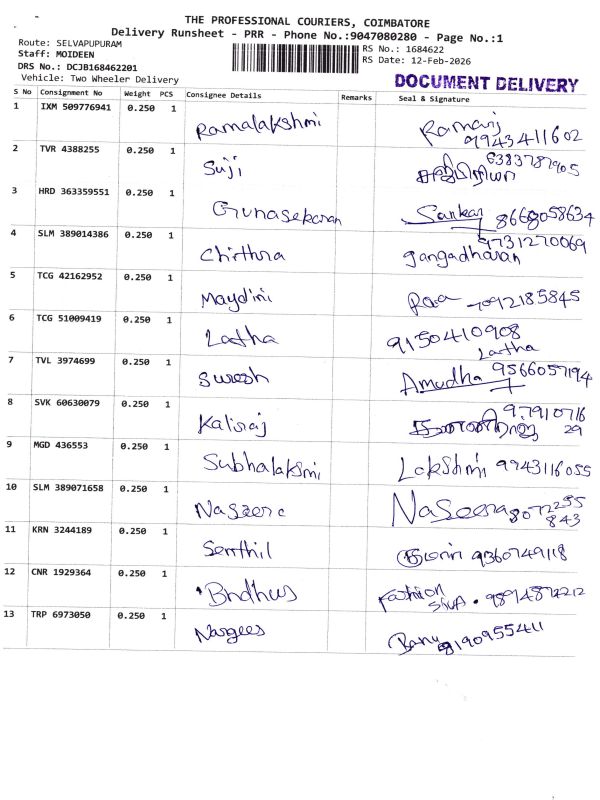 THE PROFESSIONAL COURIERS, COIMBATORE
Delivery Runsheet - PRR - Phone No.:9047080280 - Page No.:1
Route: SELVAPUPURAM
Staff: MOIDEEN
DRS No.: DCJB168462201
Vehicle: Two Wheeler Delivery
RS No.: 1684622
RS Date: 12-Feb-2026
DOCUMENT DELIVERY
S No Consignment No Weight PCS Consignee Details Remarks Seal & Signature
1 IXM 509776941 0.250 1 Ramalakshmi Ramaraj 9943411602
2 TVR 4388255 0.250 1 Suji 6383787905
3 HRD 363359551 0.250 1 Gunasekaran Sankar 8668058634
4 SLM 389014386 0.250 1 Chithra 9731270069 gangadharan
5 TCG 42162952 0.250 1 Maydini 7092185845
6 TCG 51009419 0.250 1 Latha 9150410908 Latha
7 TVL 3974699 0.250 1 Suresh Amudha 9566057194
8 SVK 60630079 0.250 1 Kalisraj 97910716 29
9 MGD 436553 0.250 1 Subhalaksmi Lakshmi 9943116055
10 SLM 389071658 0.250 1 Naseera Naseera 8072255 843
11 KRN 3244189 0.250 1 Senthil 9360749118
12 CNR 1929364 0.250 1 Bndhus Fashion
13 TRP 6973050 0.250 1 Nargees Banu 9190955411